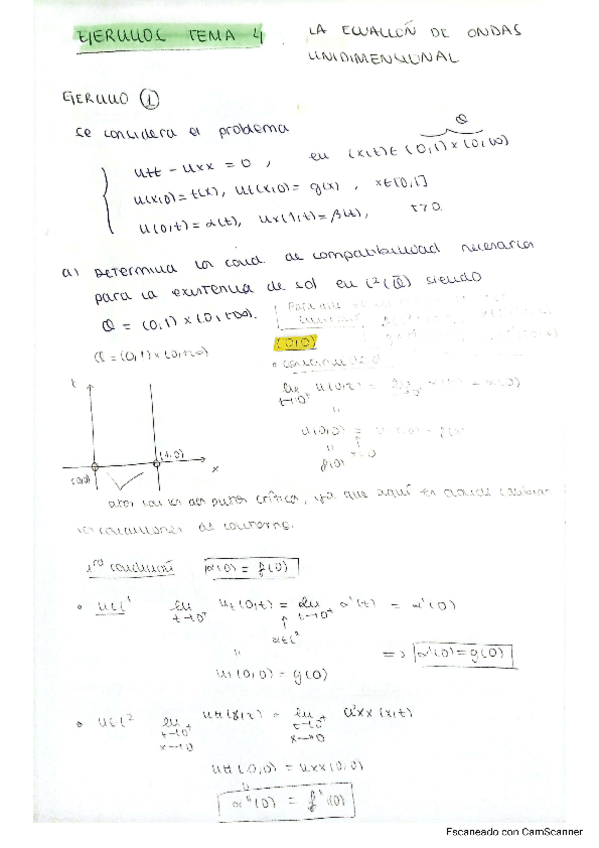 EJERCICIOS TEMA 4. LA ECUACIÓN DE ONDAS
UNIDIMENSIONAL
EJERCICIO ①
Se considera el problema
Q
utt - uxx = 0, en (x,t)∈(0,1)×(0,∞)
u(x,0)=f(x), ut(x,0)=g(x), x∈[0,1]
u(0,t)=α(t), ux(1,t)=β(t), t>0.
a) Determina las cond. de compatibilidad necesarias
para la existencia de sol en C²(Q̄) siendo
Q = (0,1)×(0,+∞).
Q=(0,1)×(0,+∞)
(0,0)
t
(0,0)
(1,0)
x
lim t→0⁺ u(0,t) =
u(0,0) =
f(0)
puntos críticos, ya que aquí es donde
condiciones de contorno.
1ra condición α(0) = f(0)
• u∈C¹ lim t→0⁺ ut(0,t) = lim t→0⁺ α'(t) = α'(0)
α∈C²
ut(0,0) = g(0)
=> α'(0)=g(0)
• u∈C² lim t→0⁺ x→0 utt(x,t) = lim t→0⁺ x→0 uxx(x,t)
utt(0,0) = uxx(0,0)
α''(0) = f''(0)
Escaneado con CamScanner